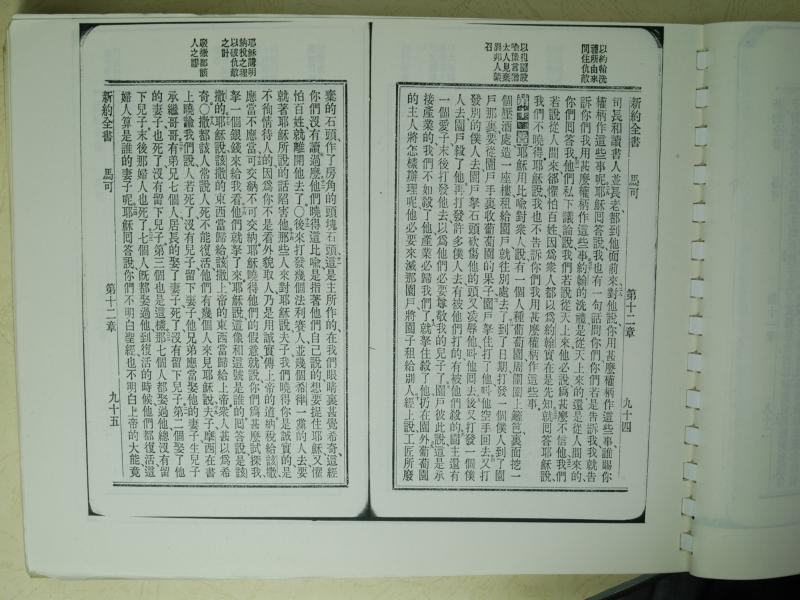 新約全書　馬可　第十二章　九十四
以約翰洗禮所由來問住仇敵
司長和讀書人並長老都到他面前來、對他說、你用甚麼權柄作這些事、誰賜你
權柄作這些事呢、耶穌囘答說、我也有一句話問你們、你們若是告訴我、我就告
訴你們我用甚麼權柄作這些事、約翰的洗禮、是從天上來的、還是從人間來的、
你們囘答我、他們私下議論說、我們若說從天上來、他必說、爲甚麼不信他、我們
若說從人間來、卻懼怕百姓、因爲衆人都以爲約翰實在是先知、就囘答耶穌說、
我們不曉得、耶穌說、我也不告訴你們我用甚麼權柄作這些事、
第十二章 耶穌用比喻對衆人說、有一個人種葡萄園、周圍圈上籬笆、裏面挖一
個壓酒處、造一座樓、租給園戶、就往別處去了、到了日期、打發一個僕人到了園
戶那裏、要從園戶手裏收葡萄園的果子、園戶拏住打了他、叫他空手囘去、又打
發別的僕人去、園戶拏石頭砍傷他的頭、又淩辱他、叫他囘去、後又打發一個僕
人去、園戶殺了他、再打發許多僕人去、有被他們打的、有被他們殺的、園主還有
一個愛子、末後打發他去、以爲他們必要尊敬我的兒子了、園戶彼此說、這是承
接產業的、我們不如殺了他、產業必歸我們了、就拏住殺了他、扔在園外、葡萄園
的主人將怎樣辦理呢、他必要來滅那園戶、將園子租給別人、經上說、工匠所廢
新約全書　馬可　第十二章　九十五
耶穌講明納稅之理以破仇敵之計
棄的石頭、作了房角的頭塊石頭、這是主所作的、在我們眼睛裏甚覺希奇、這經
你們沒有讀過麼、他們曉得這比喻是指著他們自己說的、想要捉住耶穌、又懼
怕百姓、就離開他去了、〇後來打發幾個法利賽人、並幾個希律一黨的人去、要
就著耶穌所說的話陷害他、那些人來對耶穌說、夫子、我們曉得你是誠實的、是
不徇情待人的、因爲你不是看外貌取人、乃是用誠實傳上帝的道、納稅給該撒、
應當不應當、可交納不可交納、耶穌曉得他們的假意、就說、你們爲甚麼試探我、
拏一個銀錢來給我看、他們就拏了來、耶穌說、這像和這號是誰的、囘答說、是該
撒的、耶穌說、該撒的東西當歸給該撒、上帝的東西當歸給上帝、衆人甚以爲希
奇、〇撒都該人常說人死不能復活、他們有幾個人來見耶穌說、夫子、摩西在書
上曉諭我們說、人若死了、沒有兒子、留下妻子、他兄弟應當娶他的妻子、生兒子
承繼哥哥、有弟兄七個人、居長的娶了妻子、死了、沒有留下兒子、第二個娶了他
的妻子、也死了、沒有留下兒子、第三個也是這樣、那七個人都娶過他、總沒有留
下兒子、末後那婦人也死了、七個人旣都娶過他、到復活的時候、他們都復活、這
婦人算是誰的妻子呢、耶穌囘答說、你們不明白聖經、也不明白上帝的大能、竟